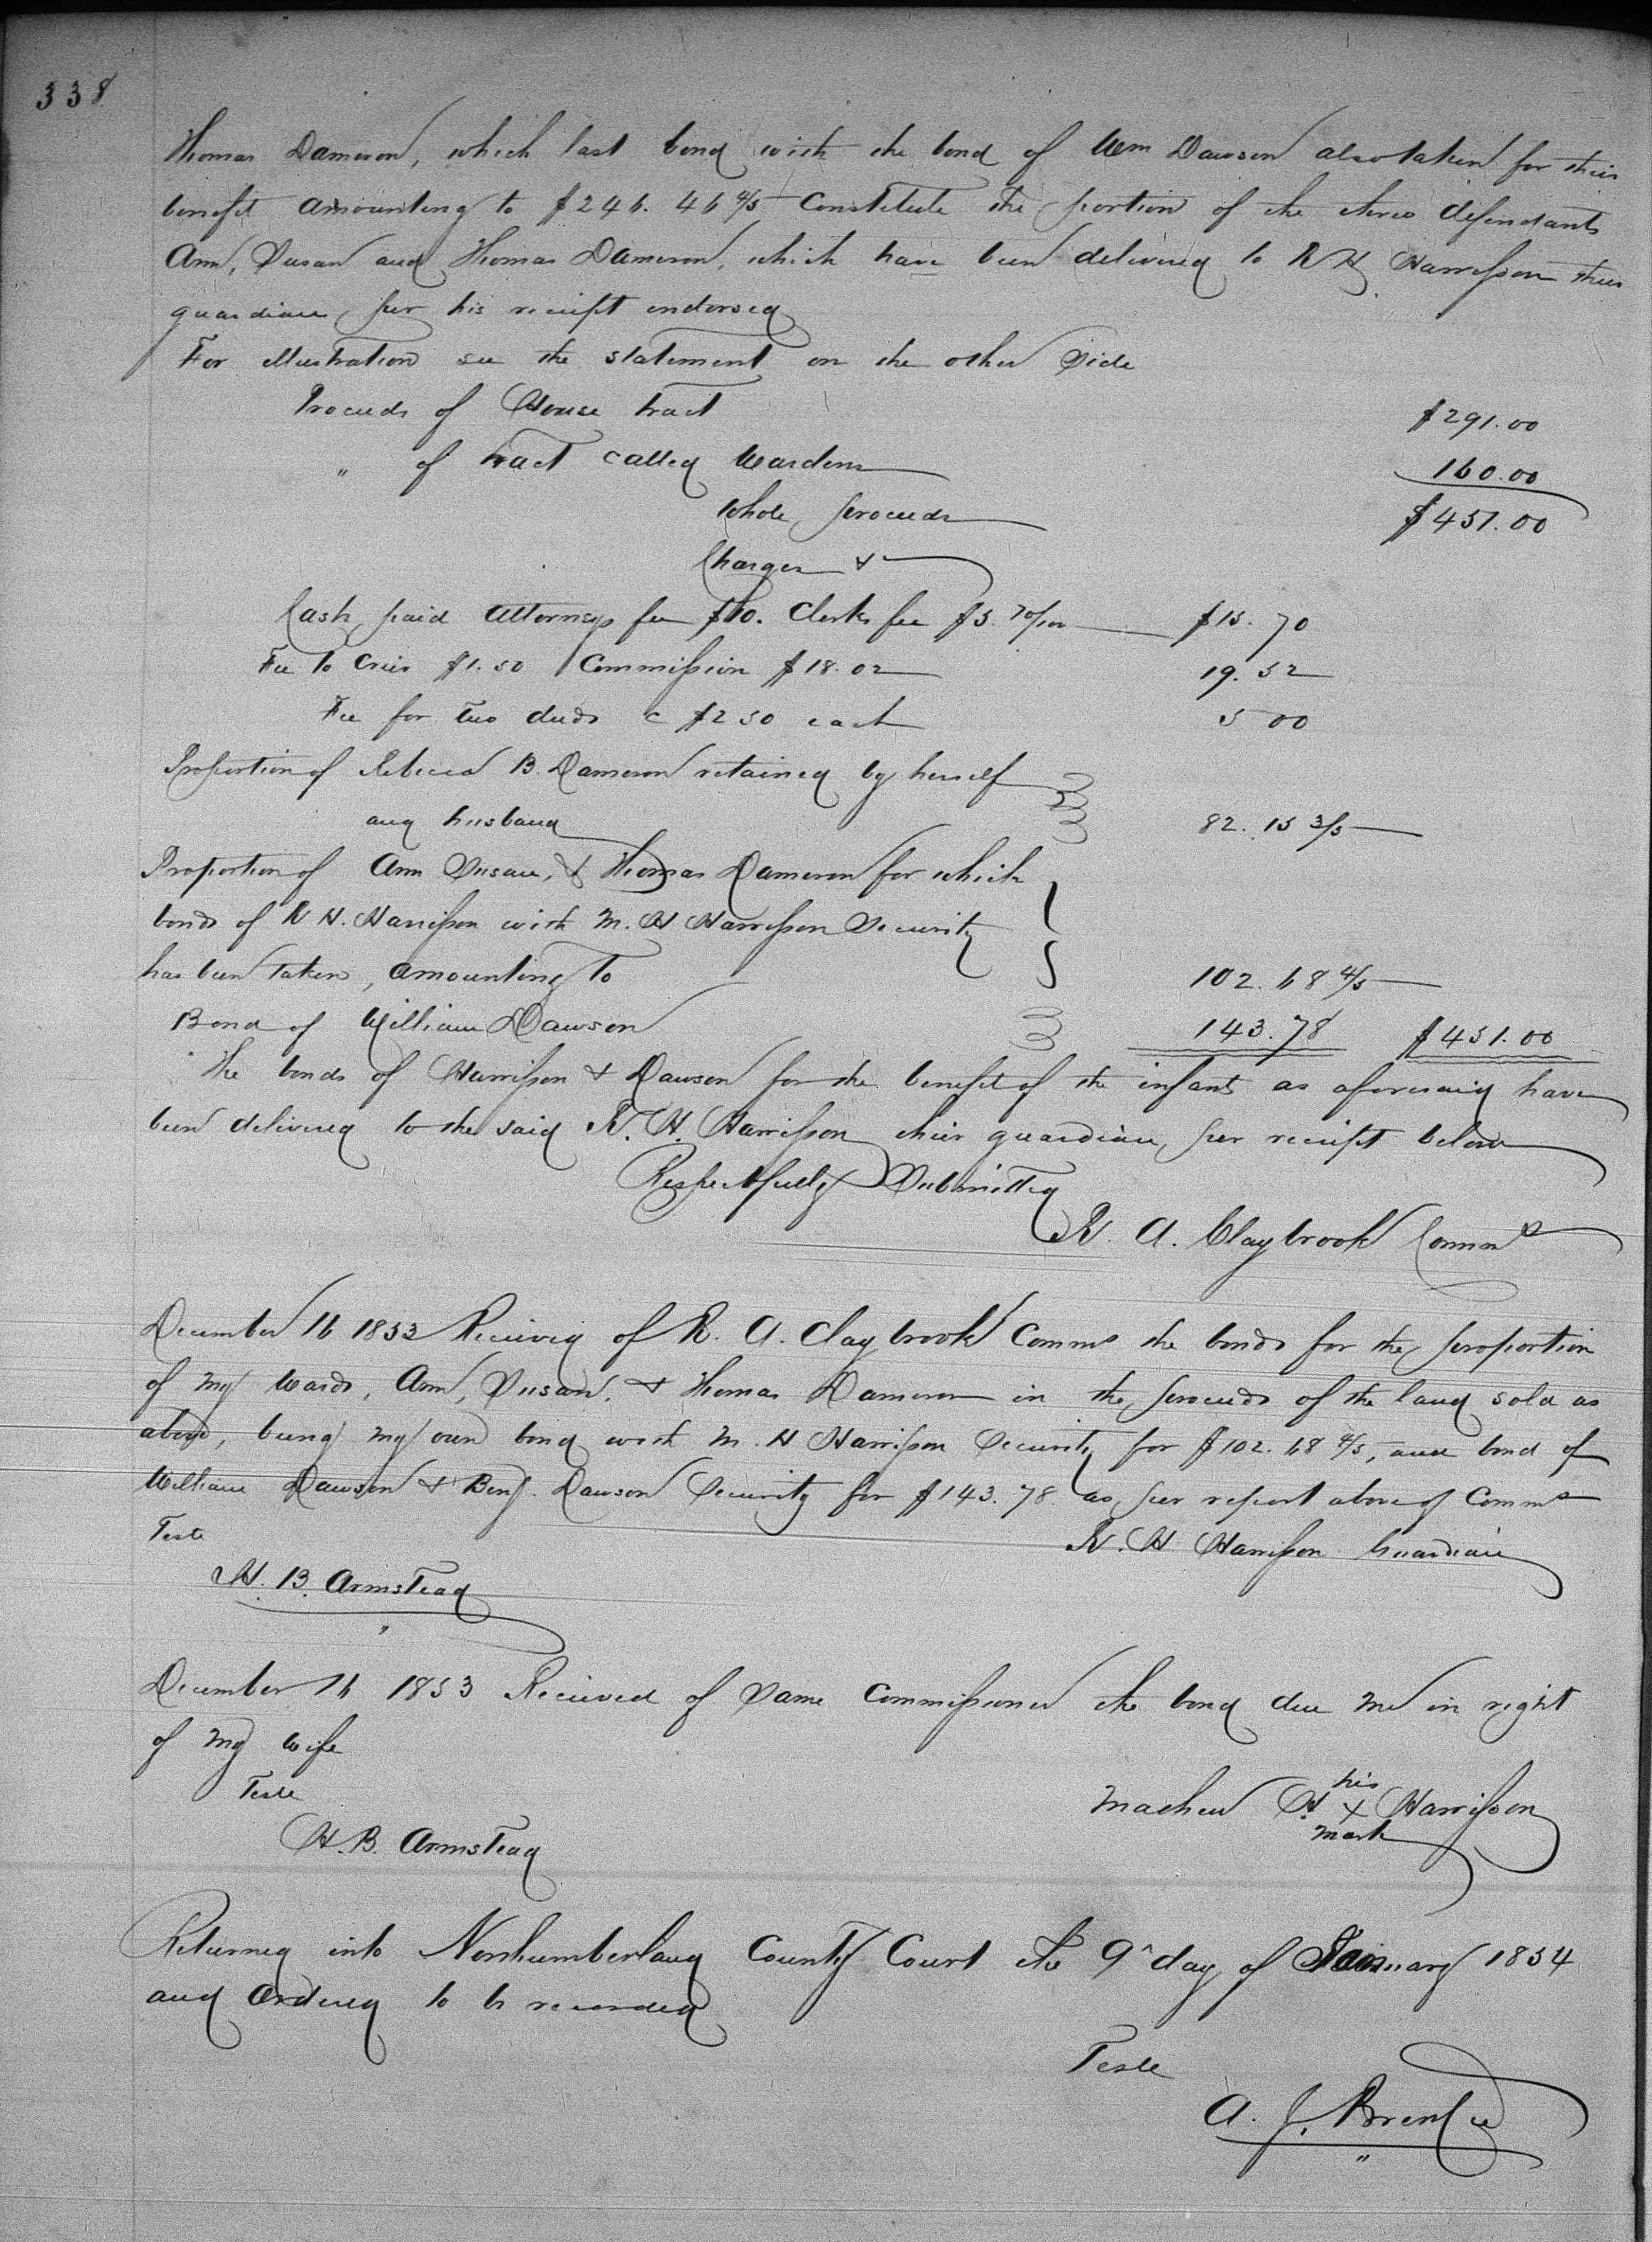 338
Thomas Dameron, which last bond with the bond of Wm Dawson also taken for their
benefit amounting to $246.46 4/5 Constitute the portion of the three defendants
Ann, Susan and Thomas Dameron, which have been delivered to R H Harrisson their
guardian per his receipt endorsed
For illustration see the statement on the other side
Proceeds of House tract $291.00
" of tract called Wardens 160.00
whole proceeds $451.00
Charges &
Cash paid Attorneys fee $10. Clerks fee $5.70/100 $15.70
Fee to Crier $1.50 Commission $18.02 19.52
Fee for two deeds @ $2 50 each 5 00
Proportion of Rebecca B. Dameron retained by herself
and husband 82.15 3/5
Proportion of Ann Susan, & Thomas Dameron for which
bonds of R H. Harrisson with M. H Harrisson Security
has been taken, amounting to 102.68 4/5
Bond of William Dawson 143.78 $451.00
The bonds of Harrisson & Dawson for the benefit of the infants as aforesaid have
been delivered to the said R. H. Harrisson their guardian, per receipt below
Respectfully Submitted
R. A. Claybrook Commr
December 16 1853 Received of R. A. Claybrook Commr the bonds for the proportion
of my wards, Ann, Susan, & Thomas Dameron in the proceeds of the land sold as
above, being my own bond with M. H Harrisson Security for $102.68 4/5, and bond of
William Dawson & Benj. Dawson Security for $143.78 as per report above of Commr
Teste R. H Harrisson Guardian
H. B. Armstead
December 16 1853 Received of same Commissioner the bond due me in right
of my wife
Teste his
Mathew H x Harrisson
mark
H. B. Armstead
Returned into Northumberland County Court the 9th day of January 1854
and Ordered to be recorded
Teste
A. J. Brent